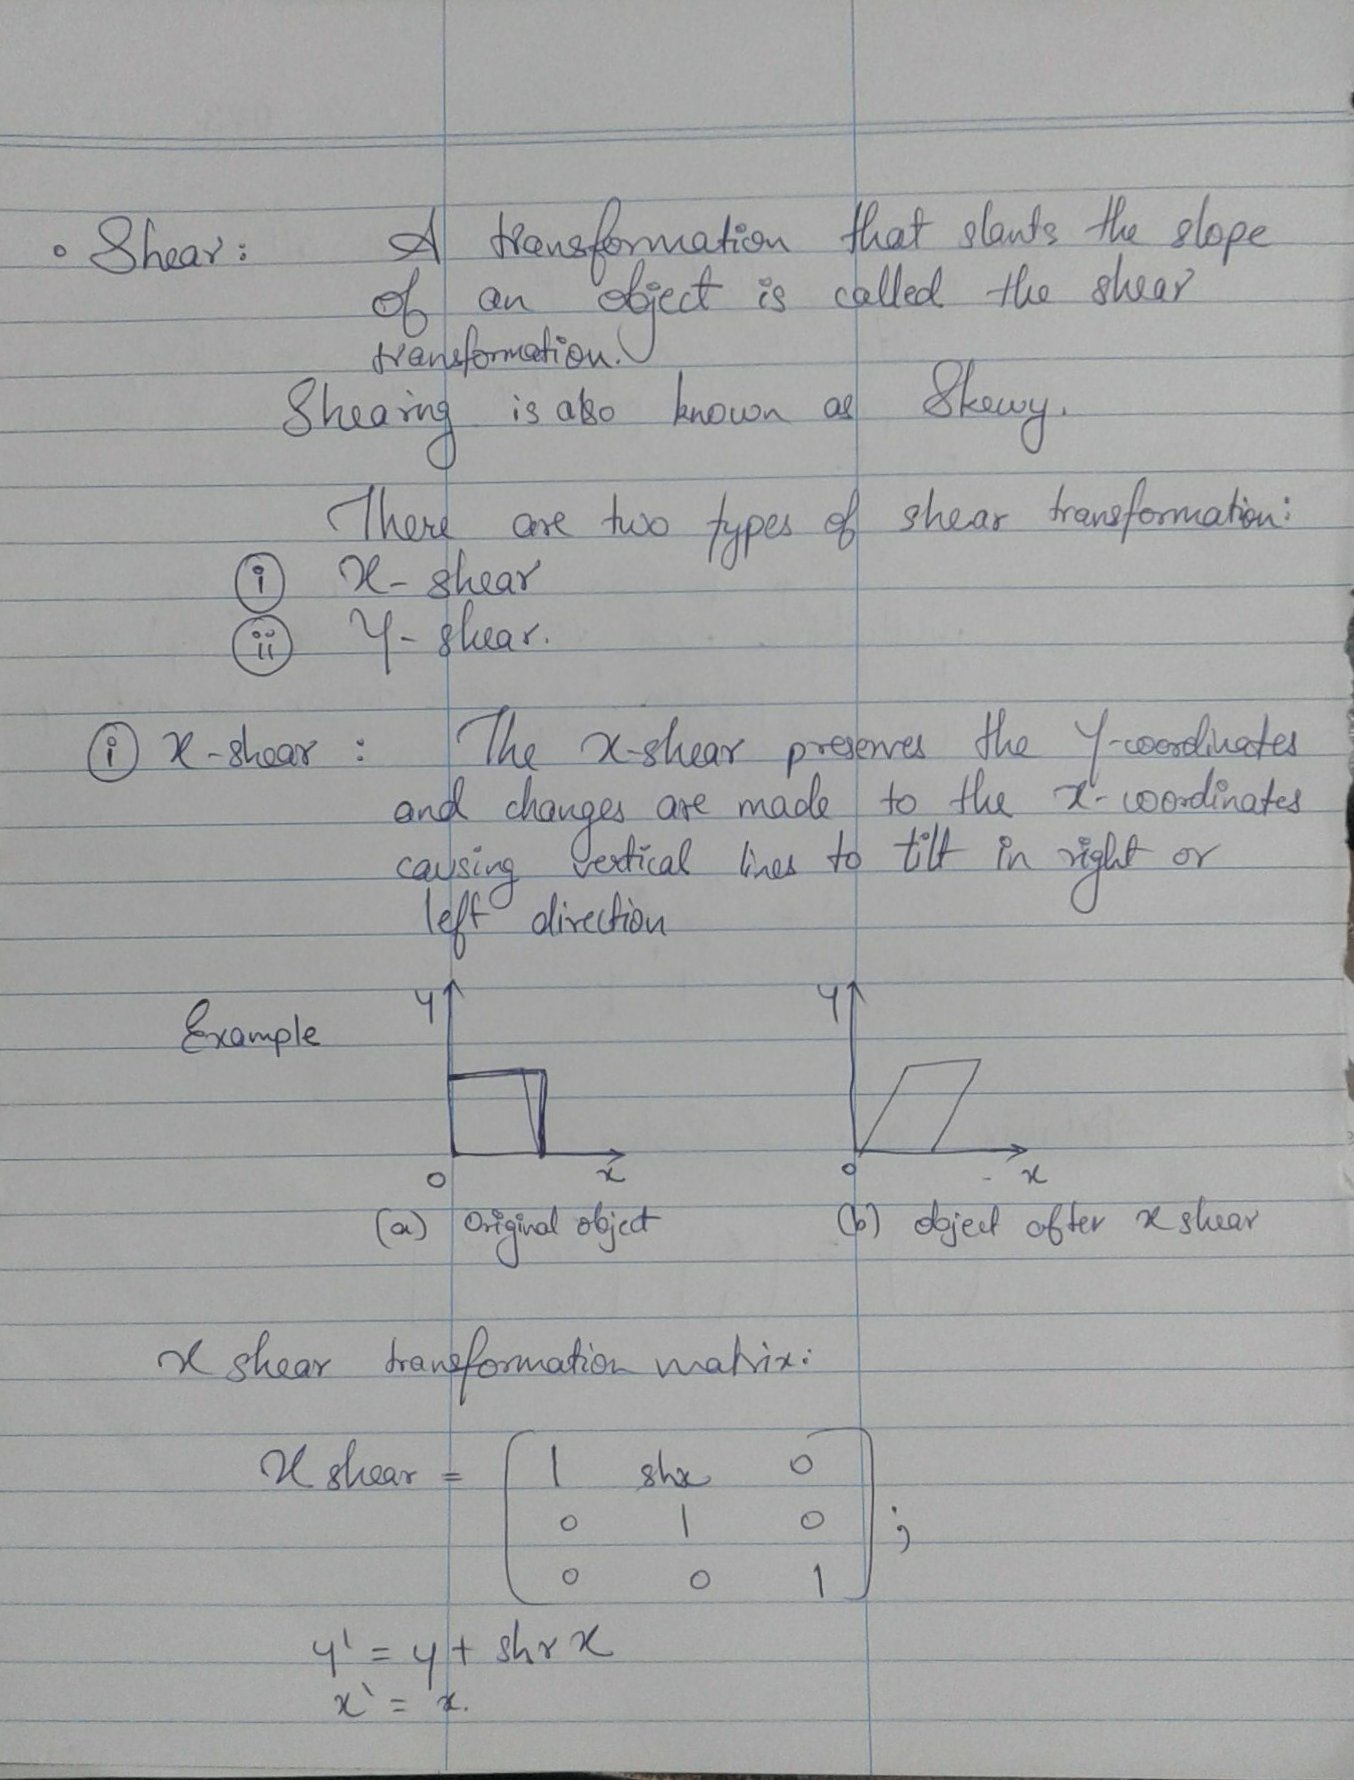 • Shear: A transformation that slants the slope
of an object is called the shear
transformation.
Shearing is also known as Skewy.
There are two types of shear transformation:
(i) x-shear
(ii) Y-shear.
(i) x-shear : The x-shear preserves the Y-coordinates
and changes are made to the x-coordinates
causing vertical lines to tilt in right or
left direction
Example
y y
0 x 0 x
(a) Original object (b) object after x shear
x shear transformation matrix:
x shear = [ 1 shx 0
0 1 0
0 0 1 ] ;
y' = y + shx x
x' = x.